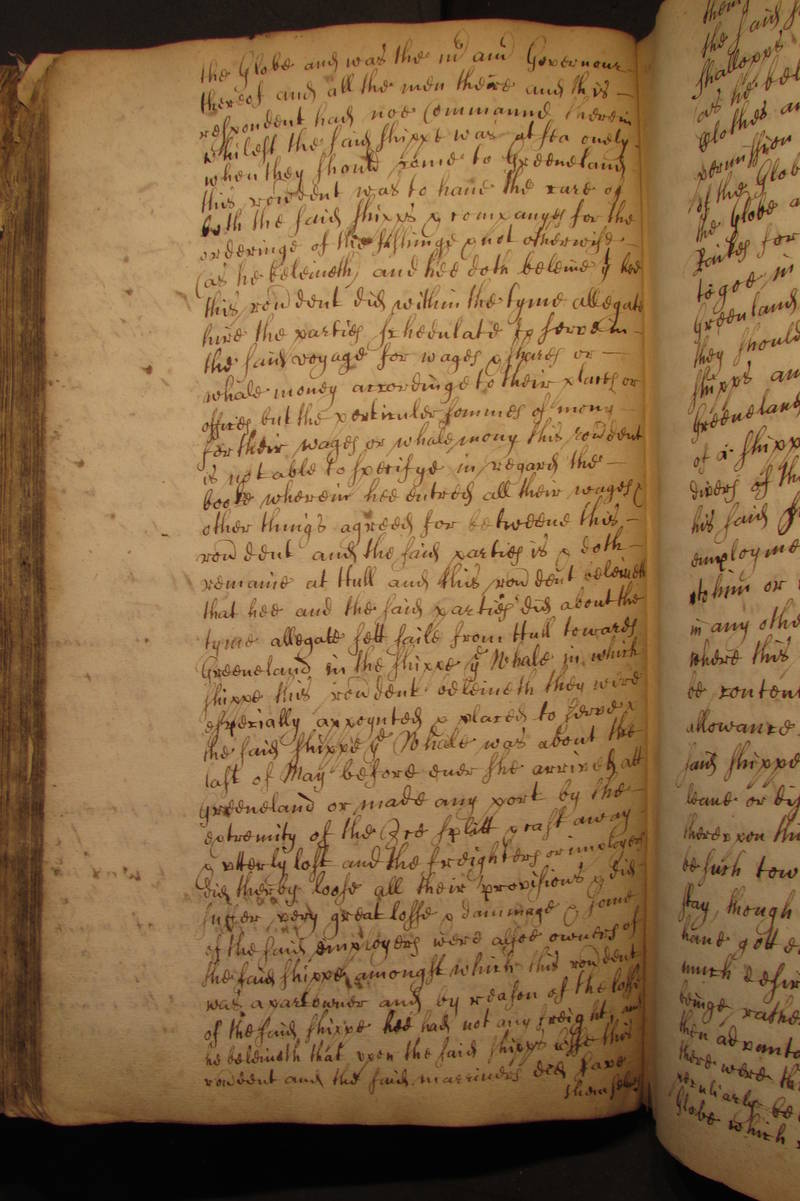 the Globe and was the mr and Governour
thereof and all the men there and this
respondent had noe Commannd therein
whilest the said shippe was at sea onely
when they should come to Greeneland
this rondent was to haue the care of
both the said shipps & companyes for the
orderinge of the fishinge & not otherwise
(as he beleiueth) and hee doth beleiue yt hee
this rondent did within the tyme allegate
hire the parties schedulate to serve in
the said voyage for wages & shares or
whale money accordinge to their places or
offices but the perticuler sommes of mony
for their wages or whale mony this rondent
is not able to specifye in regard the
booke wherein hee entred all their wages &
other things agreed for betweene this
rondent and the said parties is & doth
remaine at Hull and this rondent beleiueth
that hee and the said parties did about the
tyme allegate sett saile from Hull towards
Greeneland in the shippe ye Whale in which
shippe this rondent beleiueth they were
especially appoynted & placed to serve &
the said shippe ye Whale was about the
last of May before euer she arrived att
Greeneland or made any port by the
extremity of the Ice splitt & cast away
& vtterly lost and the freighters or imployers
did therby loose all their provisions & did
suffer very great losse & dammage & some
of the said employers were alsoe owners of
the said shippe amongst which this rondent
was a partowner and by reason of the losse
of the said shippe hee had not any freight and
he beleiueth that vpon the said shipps losse this
rondent and the said marriners did save
themselues
them
the said s
shallopps
as he bel
Clothes an
permission
of the Glob
the Globe a
for
to goe in
Greenland
they should
shipps an
Greeneland
of a shipp
divers of th
his said
employme
to him or
in any othe
where this
be content
allowance
said shippe
leaue or
therevpon thi
be such tow
stay, though
haue gott
much desir
beinge rathe
then advanta
there were th
peculiarly be
Globe which